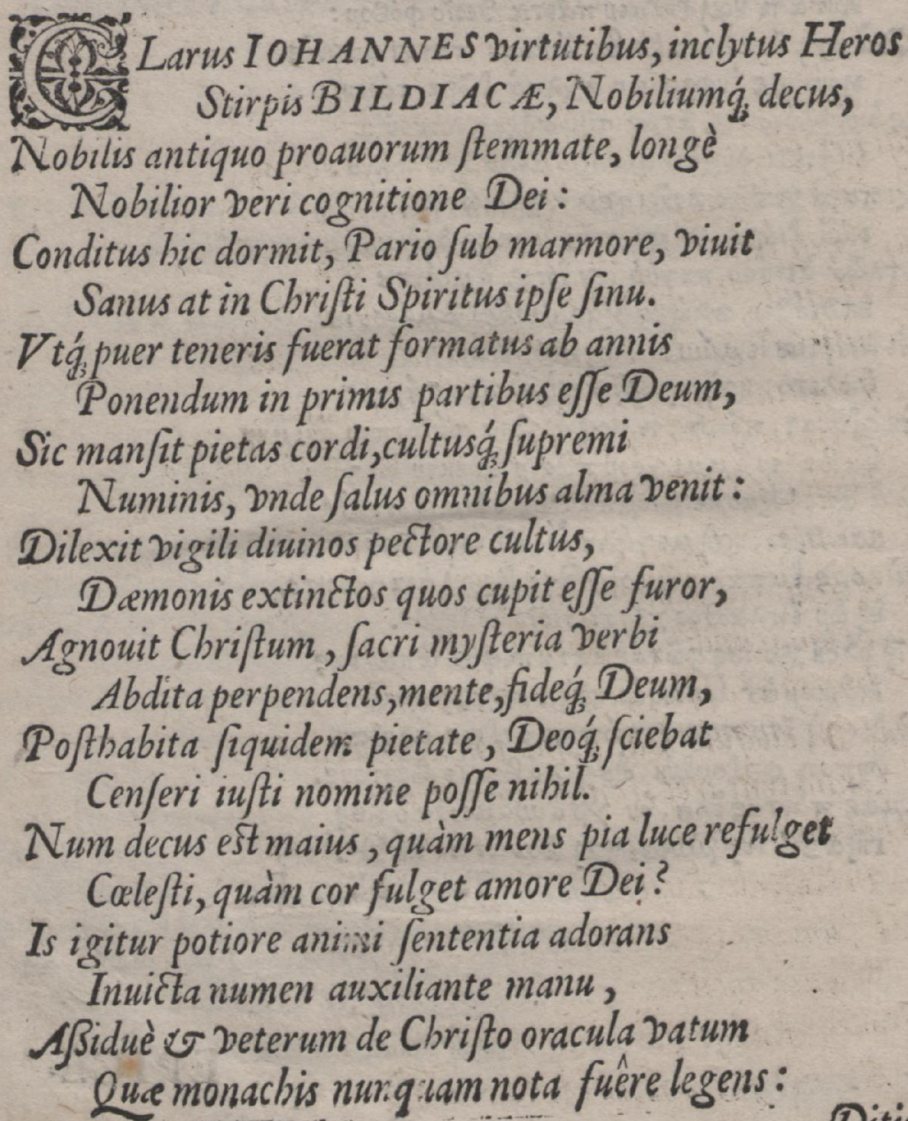 CLarus IOHANNES virtutibus, inclytus Heros
Stirpis BILDIACÆ, Nobiliumq́; decus,
Nobilis antiquo proauorum ſtemmate, longè
Nobilior veri cognitione Dei:
Conditus hic dormit, Pario ſub marmore, viuit
Sanus at in Chriſti Spiritus ipſe ſinu.
Vtq́; puer teneris fuerat formatus ab annis
Ponendum in primis partibus eſſe Deum,
Sic manſit pietas cordi, cultusq́; ſupremi
Numinis, vnde ſalus omnibus alma venit:
Dilexit vigili diuinos pectore cultus,
Dæmonis extinctos quos cupit eſſe furor,
Agnouit Chriſtum, ſacri myſteria verbi
Abdita perpendens, mente, fideq́; Deum,
Poſthabita ſiquidem pietate, Deoq́; ſciebat
Cenſeri iuſti nomine poſſe nihil.
Num decus eſt maius, quàm mens pia luce refulget
Cœleſti, quàm cor fulget amore Dei?
Is igitur potiore animi ſententia adorans
Inuicta numen auxiliante manu,
Aßiduè & veterum de Chriſto oracula vatum
Quæ monachis nunquam nota fuêre legens: